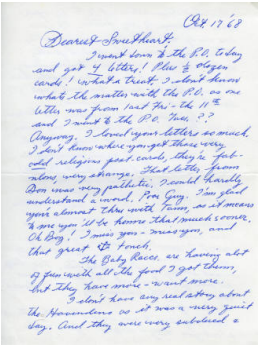 Oct. 17 '68
Dearest Sweetheart,
I went down to the P.O. today
and got 4 letters! Plus ½ dozen
cards! What a treat. I don't know
whats the matter with the P.O. as one
letter was from last Fri - the 11th
and I went to the P.O. Tues. ??
Anyway, I loved your letters so much.
I don't know where you get those very
odd religious post cards, they're fab-
ulous, very strange. That letter from
Don was very pathetic, I could hardly
understand a word. Poor Guy. I'm glad
your almost thru with as it means
to me you'll be home that much sooner.
Oh Boy, I miss you - miss you, and
that great touch.
The Baby Races are having alot
of fun with all the food I got them,
but they have more - want more.
I don't have any real story about
the as it was a very quiet
day. And they were very subdued &